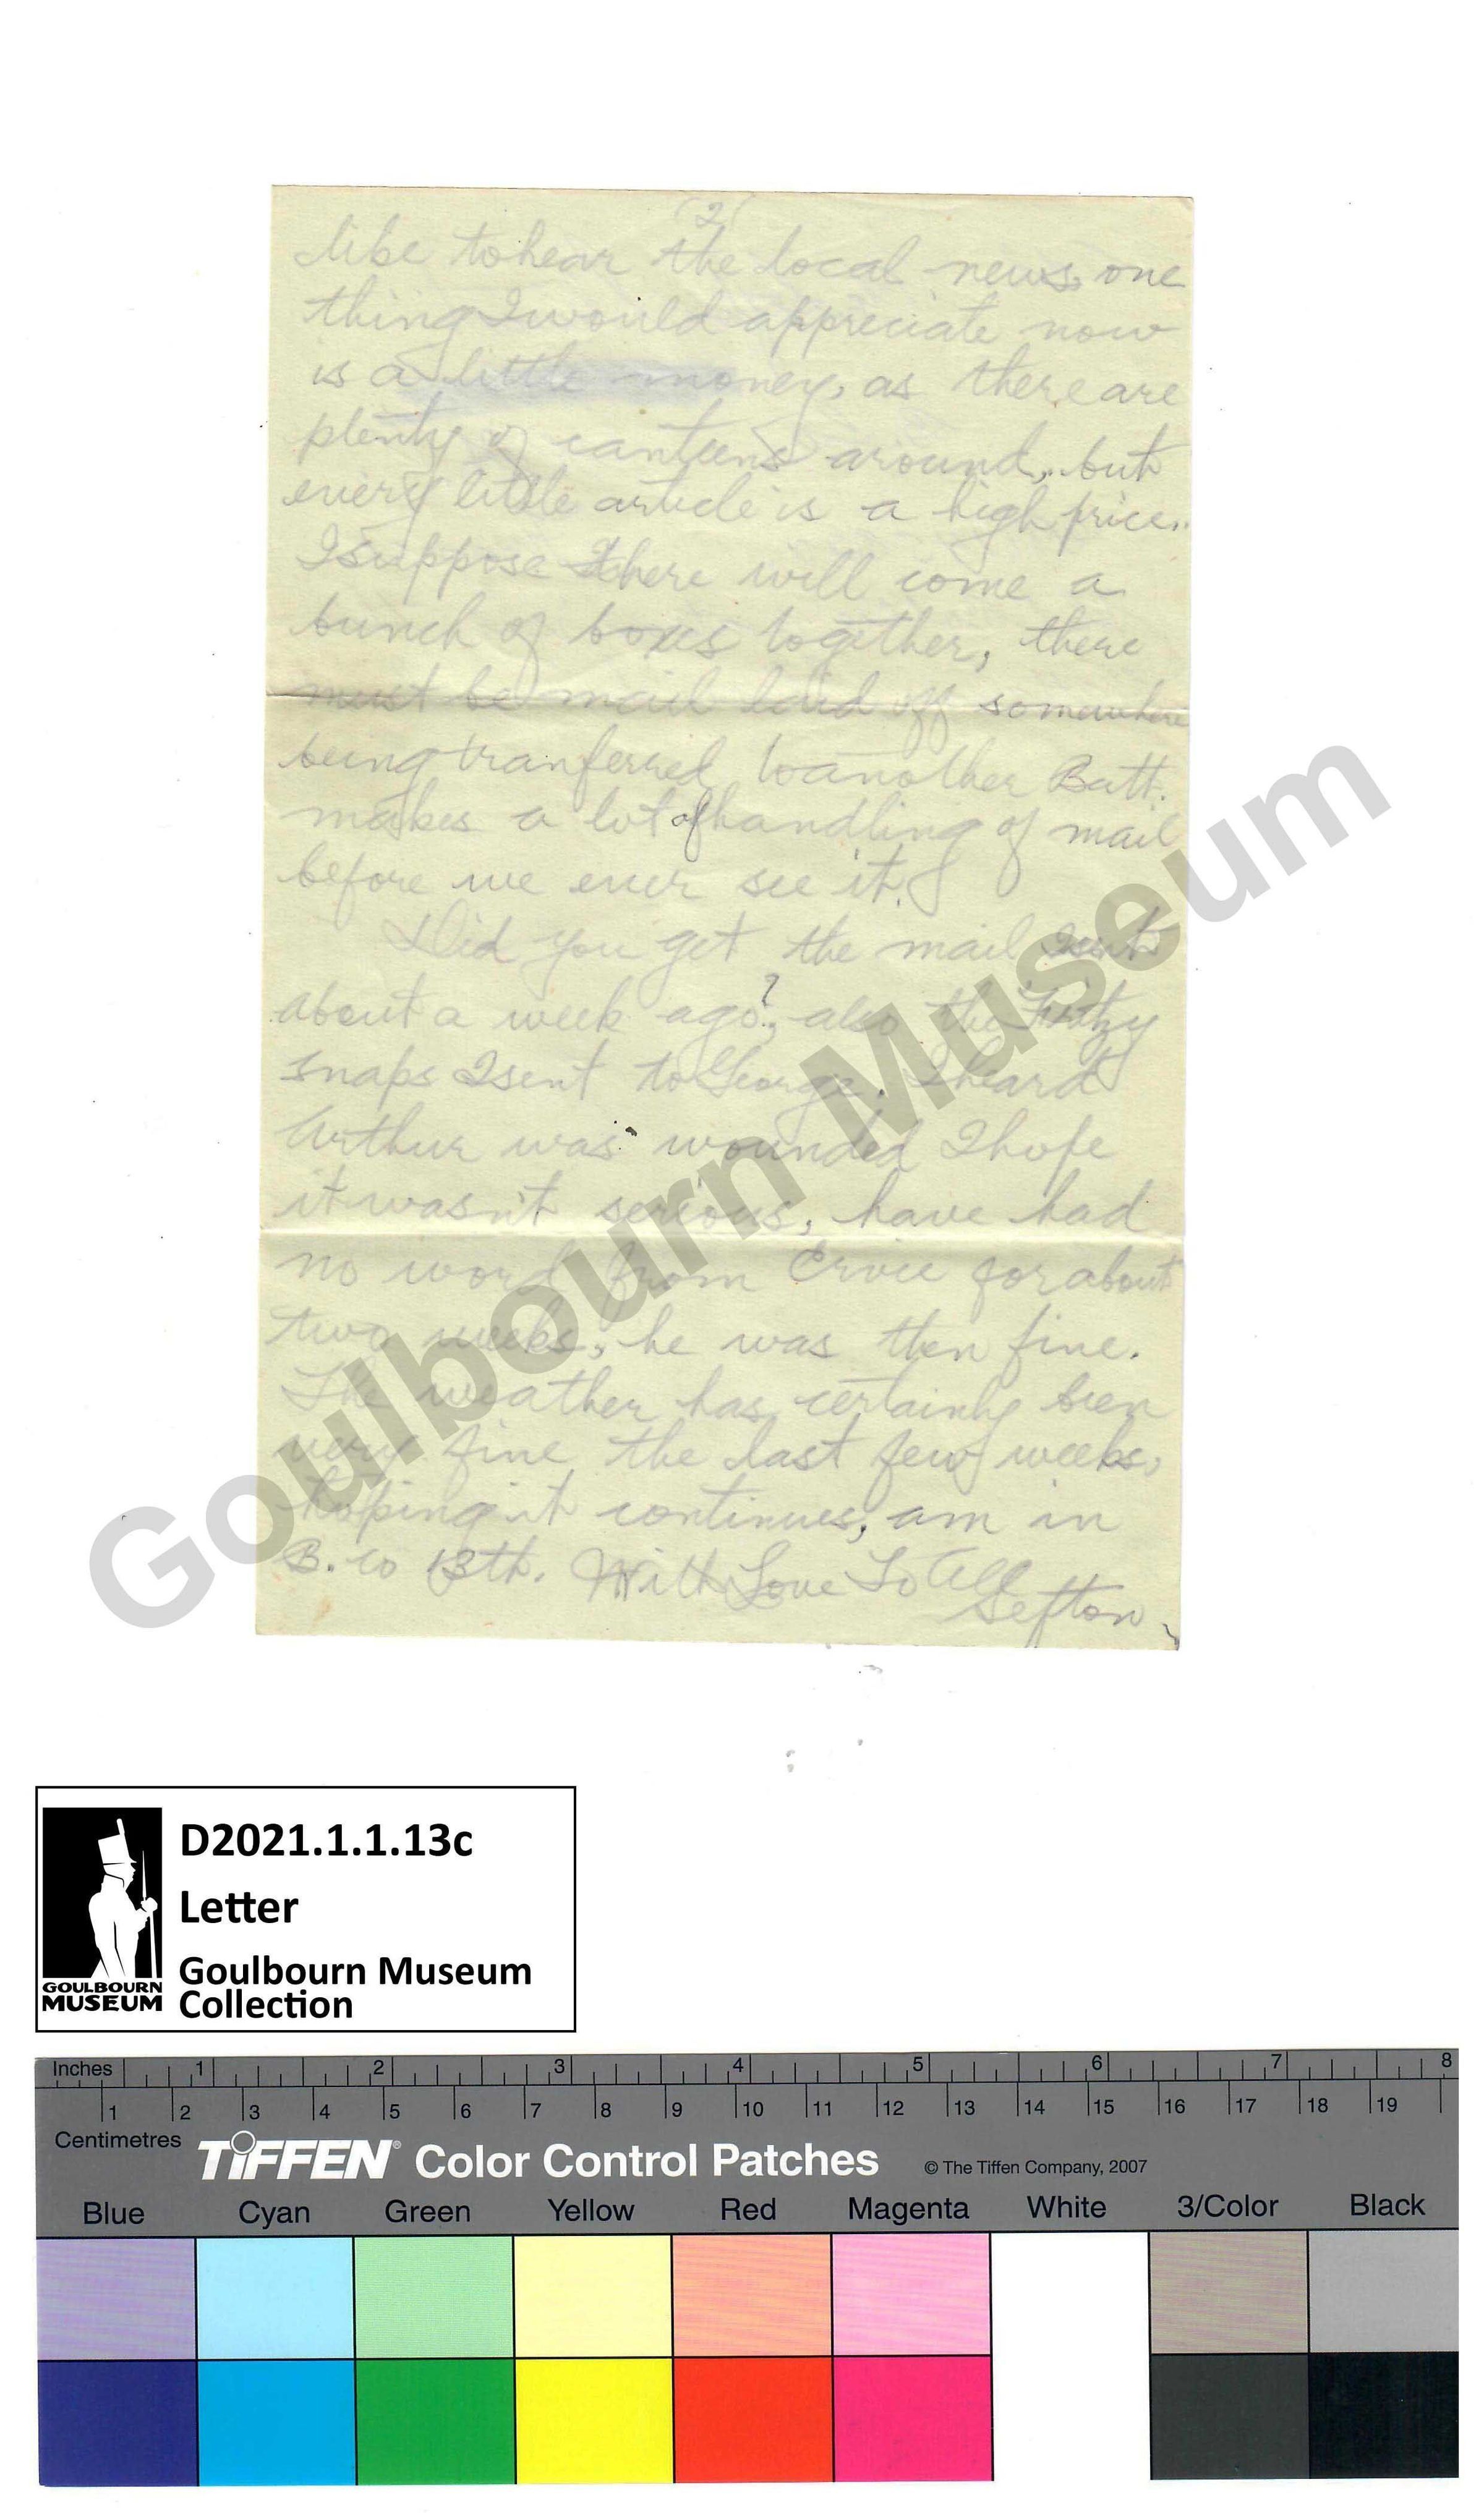 (2(
like to hear the local news, one
thing I would appreciate now
is a little money, as there are
plenty of canteens around, but
every little article is a high price..
I suppose there will come a
bunch of boxes together, there
must be mail laid off somewhere
being tranferred to another Batt.
makes a lot of handling of mail
before we ever see it.
Did you get the mail sent
about a week ago?, also the Fritzy
snaps I sent to George. I heard
Arthur was wounded I hope
it wasn't serious, have had
no word from Ervie for about
two weeks, he was then fine.
The weather has certainly been
very fine the last few weeks,
hoping it continues, am in
B. Co 13th. With Love To All
Sefton
Goulbourn Museum
D2021.1.1.13c
Letter
Goulbourn Museum
Collection
GOULBOURN
MUSEUM
Inches 1 2 3 4 5 6 7 8
1 2 3 4 5 6 7 8 9 10 11 12 13 14 15 16 17 18 19
Centimetres
TIFFEN® Color Control Patches © The Tiffen Company, 2007
Blue Cyan Green Yellow Red Magenta White 3/Color Black